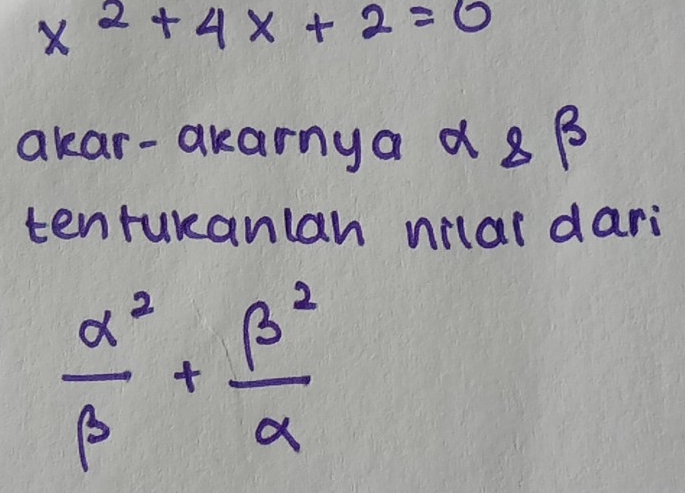 x² + 4x + 2 = 0
akar-akarnya α & β
tentukanlah nilai dari
α²/β + β²/α